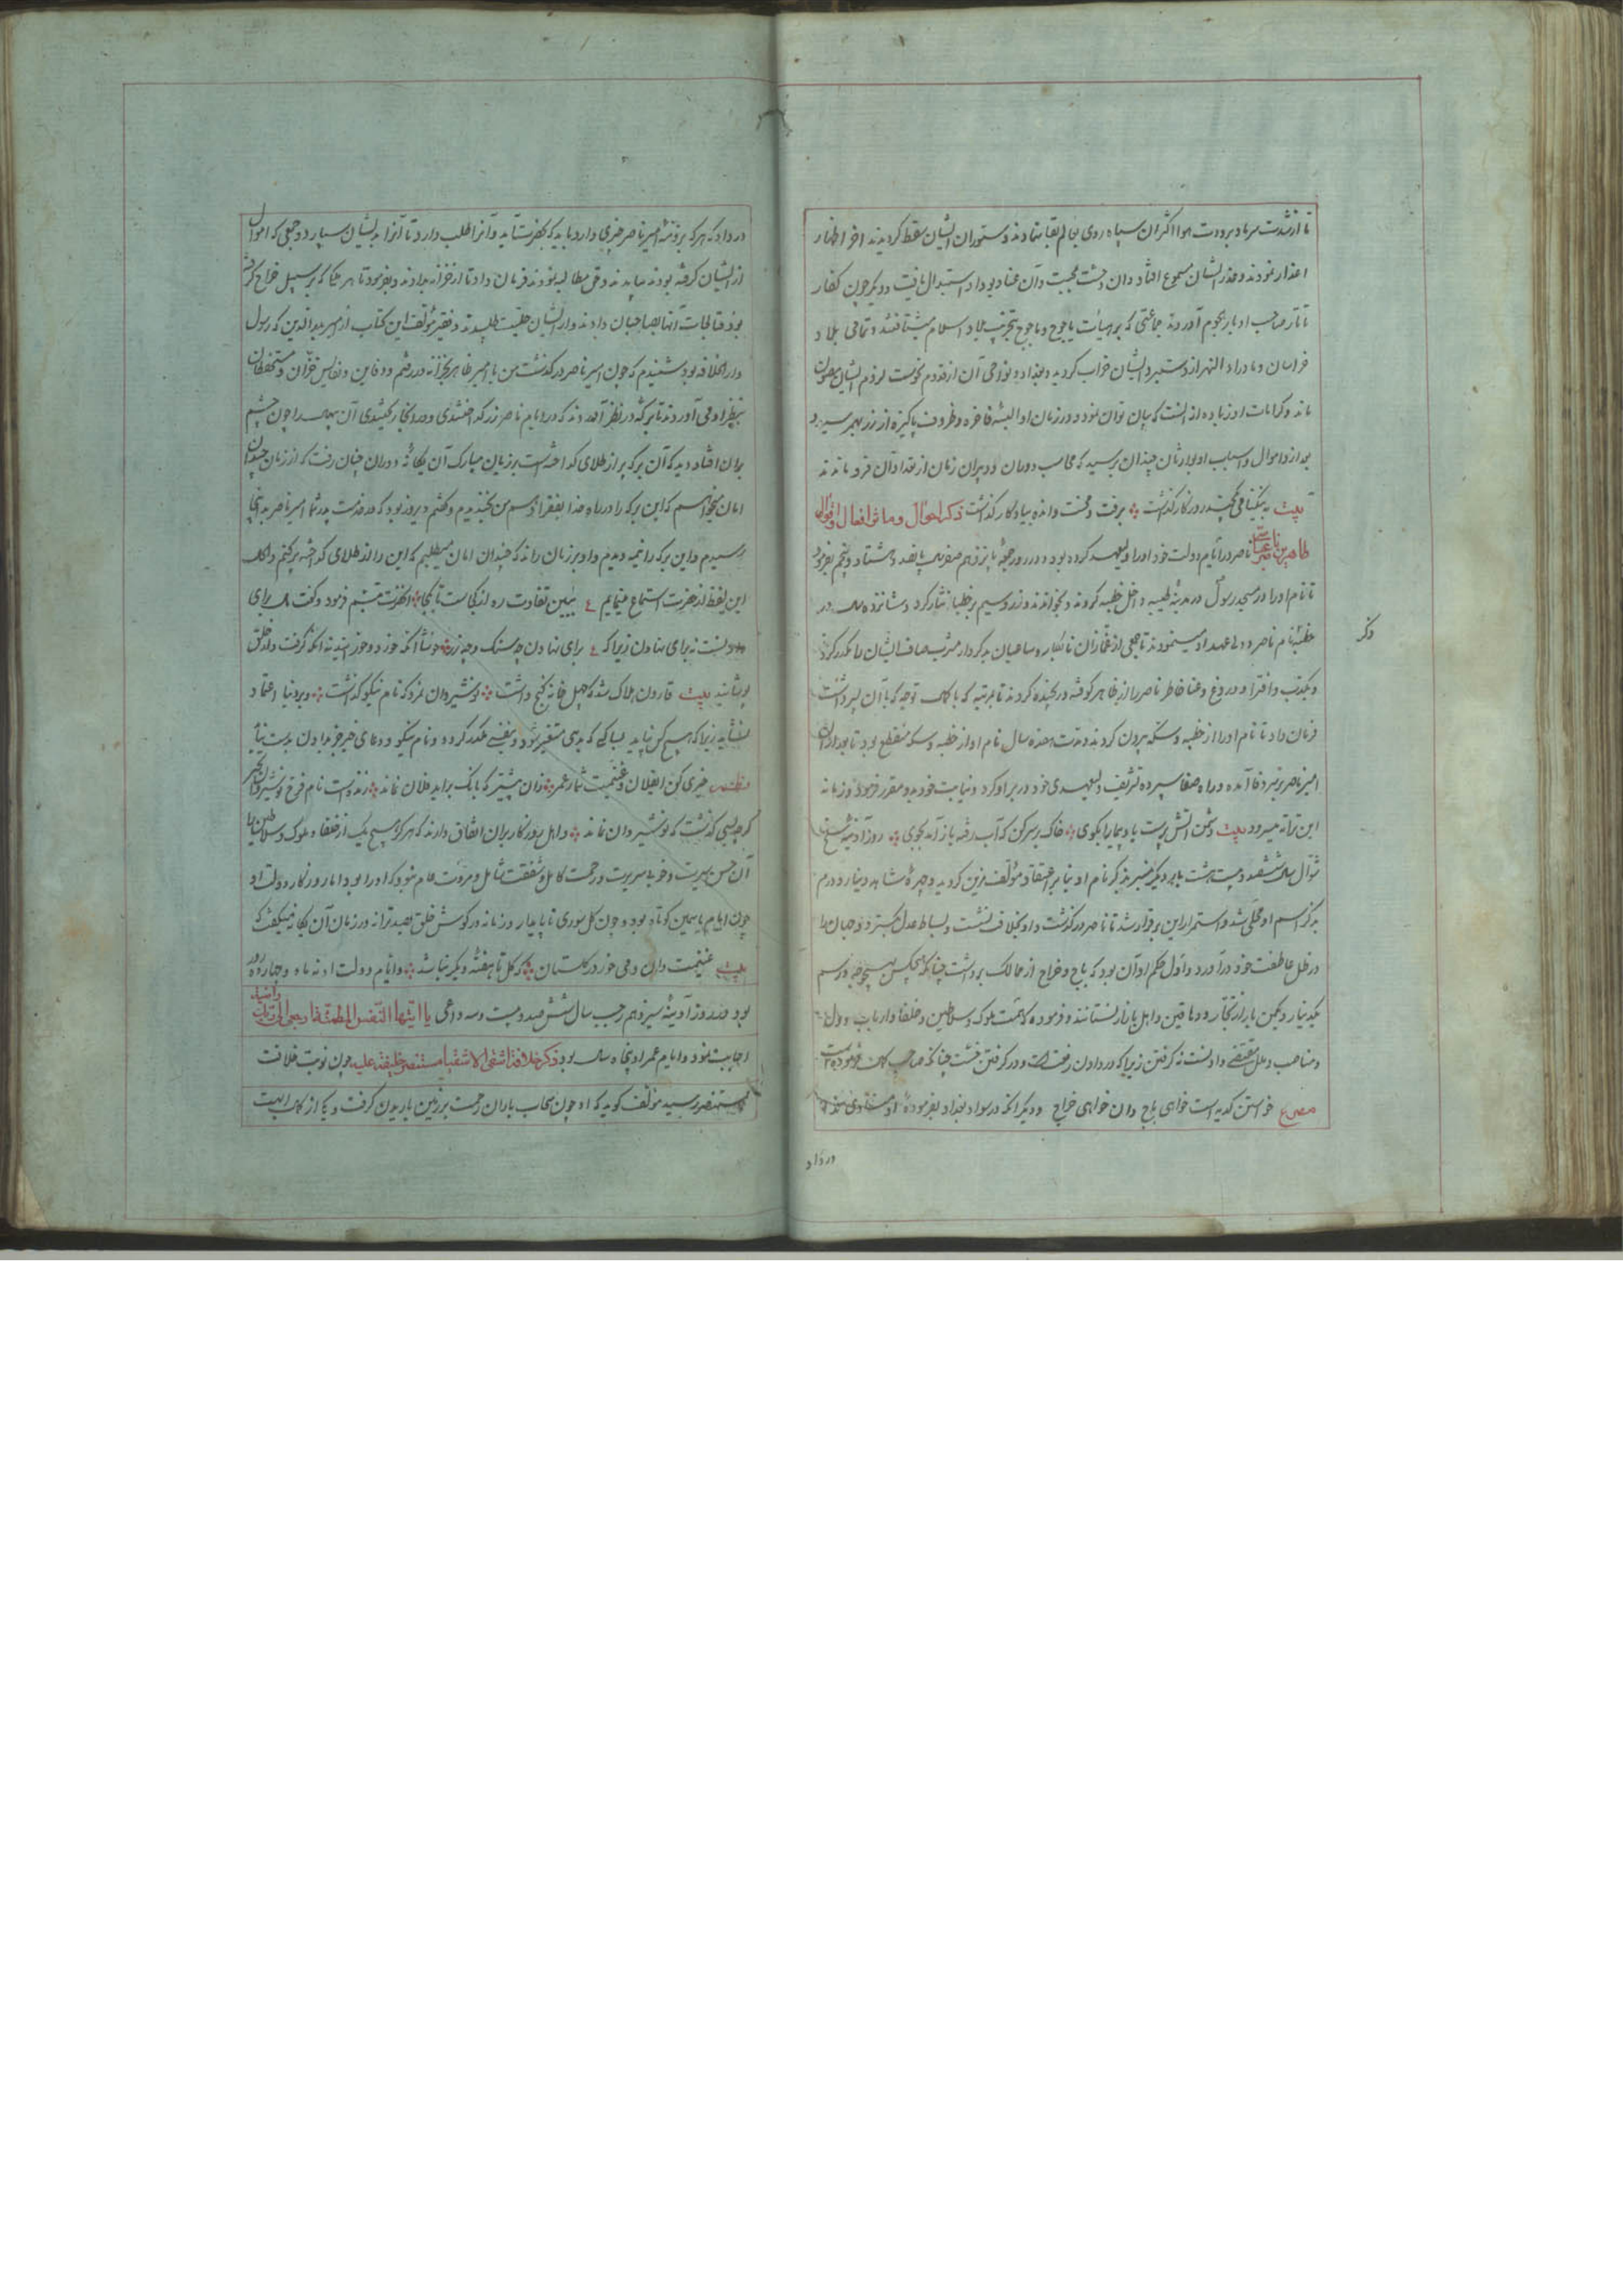 تا از شدت سرما و برودت هوا اکثر آن سپاه روی بعالم بقا نهادند و ستوران ایشان سقط گردیدند آخر اظهار
اعذار نمودند و عذر ایشان مسموع افتاد و آن وحشت بمحبت و آن عناد بوداد استبدال یافت و دیگر چون کفار
تاتار صاحب ادبار هجوم آوردند جماعتی که بر هیأت یاجوج و ماجوج بتخریب بلاد اسلام میشتافتند و تمامی بلاد
خراسان و ماوراء النهر از دستبرد ایشان خراب گردید و بغداد و نواحی آن از قدوم نحوست لزوم ایشان مصون
ماند و کرامات او زیاده از آنست که بیان توان نمود و در زمان او البسه فاخره و ظروف پاکیزه از زر بهم رسید و
بعد از و اموال و اسباب او بوارثان چندان برسید که محاسب دوران و دبیران زمان از تعداد آن فرو ماندند
بیت به نیکنامی چند روزگار گذشت برفت و محنت و انده بیادگار گذاشت ذکر احوال و مآثر افعال و اقوال
طاهر بن ناصر عباسی ناصر در ایام دولت خود او را ولیعهد کرده بود و در روز جمعه پانزدهم صفر سال پانصد و هشتاد و پنجم بفرمود
تا نام او را در مسجد رسول در مدینه طیبه داخل خطبه کردند و بخواندند و زر و سیم بر خطبا نثار کرد و شانزده سال در
خطبه نام ناصر و ولی عهد او میخمودند تا جمعی از غمازان نابکار و ساعیان بدکردار مشرب صاف ایشان را مکدر کردند
و بکذب و افترا و دروغ و عنا خاطر ناصر را از ظاهر کوفته و رنجیده کردند تا بمرتبه که با کمال توجه که با آن پسر داشت
فرمان داد تا نام او را از خطبه و سکه بیرون کردند و مدت هفده سال نام او از خطبه و سکه منقطع بود تا بعد از آن
امیر ناصر بر سر وفا آمده و راه صفا سپرده تشریف ولیعهدی خود در بر او کرد و نیابت خود بدو مقرر فرمود و زمانه
این ترانه میسرود بیت دشمن آتش پرست باد پیما را بگوی خاک بر سر کن که آب رفته باز آمد بجوی روز آدینه
شوال سال ششصد و بیست و هشت بار دیگر منبر بذکر نام او بنا بر اعتقاد مؤلف مزین گردید و چهره شاهد دینار و درم
بذکر اسم او محلی شد و استمرار این برقرار شد تا ناصر درگذشت و او بخلافت نشست و بساط عدل بگسترد و جهان را
در ظل عاطفت خود درآورد و اول حکم او آن بود که باج و خراج از ممالک برداشت چنانکه هیچکس بهیچوجه درسم
یکدینار و یکمن بار از تجار و دهاقین و اهل بازار نستانند و فرموده که همت ملوک و سلاطین و خلفا و ارباب دول
و مناصب و ملل مقتضی دادنست نه گرفتن زیرا که در دادن رفعتست و در گرفتن خست چنانکه صاحب کمال فرموده بیت
مصرع خواستن کدیه است خواهی باج دان خواهی خراج و دیگر آنکه در سواد بغداد بفرموده او منادی
ذکر
در داد
در داد که هر که بر ذمه امیر ناصر چیزی دارد باید که بحضرت آید و آنرا طلب دارد تا آنرا بدیشان سپارد و جمعی که اموال
از ایشان گرفته بودند بیامدند و حق مطالبه نمودند فرمان داد تا از خزانه بدادند و بفرمود تا هر جا که بر سبیل خراج گرفته
بودند قبالجات آنها بصاحبان دادند و از ایشان حلیت طلبیدند و فقیر مؤلف این کتاب از امیر بدرالدین که رسول
دار الخلافه بود شنیدم که چون امیر ناصر درگذشت من با امیر ظاهر بخزانه در رفتم و دفاین و نفایس خزان و مستحفظان
بنظر او می آوردند تا برکه در نظر آمدند که در ایام ناصر زر گداختندی و در انجا ریختندی آن بهره را چون چشم
بران افتاد دید که آن برکه پر از طلای گداخته است بر زبان مبارک آن یگانه دوران چنان رفت که از زمان چندان
امان میخواهم که این برکه را در راه خدا بفقرا دهم من بخندیدم و گفتم دیروز بود که در خدمت پدر شما امیر ناصر بدینجا
رسیدم و این برکه را نیمه دیدم و او بر زبان راند که چندان امان میطلبم که این را از طلای گداخته پر کنم و الحال
این لفظ از حضرت استماع مینمایم ع ببین تفاوت ره از کجاست تا بکجا آنحضرت تبسم فرمود و گفت مال برای
دادنست نه برای نهادن زیرا که ع برای نهادن چه سنگ و چه زر خوشا آنکه خورد و خورانید نه آنکه گرفت و از خلق
پوشانید بیت قارون هلاک شد که چهل خانه گنج داشت نوشیروان نمرد که نام نیکو گذاشت و بر دنیا اعتماد
نشاید زیرا که هیچ کس نپاید بسا کسی که بدمی متغیر شود و بنفسی مکدر گردد و نام نیکو و دعای خیر جز بدادن بدست نیاید
نظم خیری کن ای فلان و غنیمت شمار عمر زان پیشتر که بانگ برآید فلان نماند زنده است نام فرخ نوشیروان بخیر
گرچه بسی گذشت که نوشیروان نماند و اهل روزگار بران اتفاق دارند که هرگز هیچ یک از خلفا و ملوک و سلاطین با
آن حسن سیرت و خوبی سریرت و رحمت کامل و شفقت شامل و مروت عام نبود که او را بود اما روزگار دولت او
چون ایام یاسمین کوتاه بود و چون گل سوری ناپایدار و زمانه در گوش خلق بصد ترانه در زمان آن یگانه میگفت که
بیت غنیمت دان و می خور در گلستان که گل تا هفته دیگر نباشد و ایام دولت او نه ماه و چهارده روز
بود و در روز آدینه سیزدهم رجب سال ششصد و بیست و سه داعی یا ایتها النفس المطمئنة ارجعی الی ربک راضیة
اجابت نمود و ایام عمر او پنجاه سال بود ذکر خلافة اشقی الاشقیا مستنصر خلیفه علیه چون نوبت خلافت
بمستنصر رسید مؤلف گوید که او چون سحاب باران رحمت بر زمین باریدن گرفت و یکی از کمال